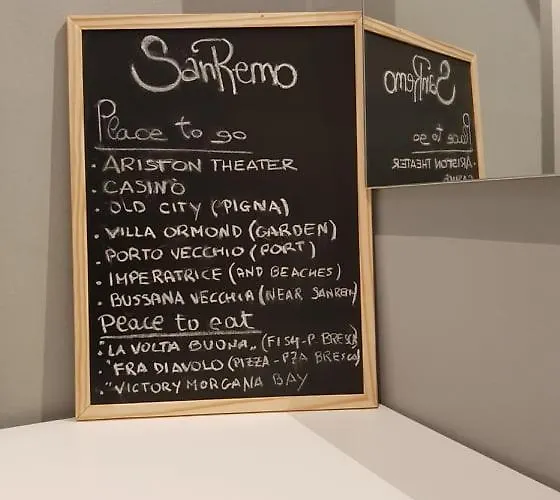 SanRemo
Place to go
· ARISTON THEATER
· CASINÒ
· OLD CITY (PIGNA)
· VILLA ORMOND (GARDEN)
· PORTO VECCHIO (PORT)
· IMPERATRICE (AND BEACHES)
· BUSSANA VECCHIA (NEAR SANREMO)
Peace to eat
· "LA VOLTA BUONA" (FISH-P. BRESCA)
· "FRA DIAVOLO (PIZZA - PZA BRESCA)
· "VICTORY MORGANA BAY
SanRemo
Place to go
· ARISTON THEATER